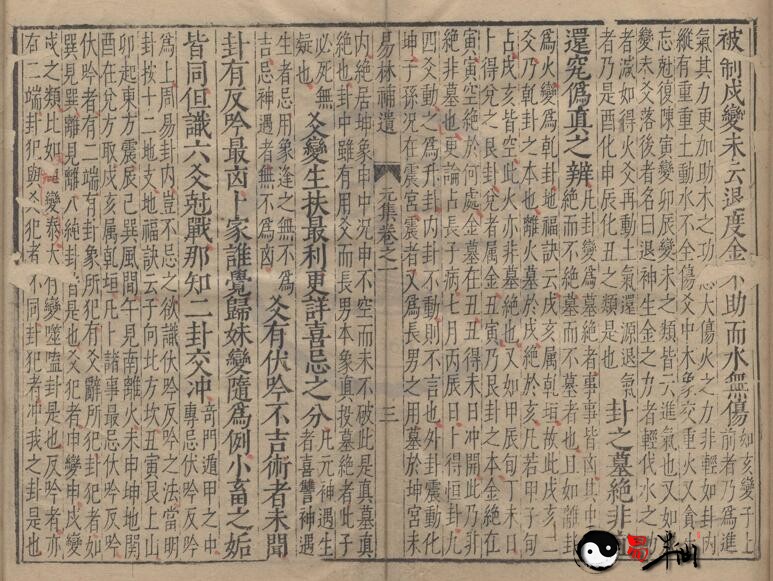 被制戌變未云退度金不助而水無傷
如亥變子上
前者乃為進
氣其力更加助木之功忌大傷火之力非輕如卦進
縱有重重土動水不全傷爻中木象交重火又食
忘尅復陳寅變卯辰變未之類皆云進氣也又如
變未爻落後者名曰退神生金之力者輕代水之功
者減如得火爻再動土氣還源退氣
者乃是酉化申辰化丑之類是也
卦之墓絕非
還究僞真之辨
此卦變為墓絕者事事皆凶其中
絕而不絕墓而不墓者也且如離卦
為火變為乾卦地福訣云戌亥屬乾垣故此戌亥二
爻乃乾卦之本也離火墓於戌絕於亥凡若甲子旬
占戌亥皆空此火亦非墓絕也又如甲辰旬丁未日
卜得兌之艮卦兌者属金丑寅乃艮卦之本金絕在
寅寅空絕於何處金墓在丑丑得未日冲開此乃非
絕非墓也更論占長子病七月丙辰日卜得恒卦九
四爻動之為升卦内卦不動則不言也外卦震動化
坤子孫況在震宮震者又為長男之用墓於坤宮未
易林補遺 元集卷之一 三
内絕居坤象申中況申不空而未不破此是真墓真
絕也卦中雖有用爻而長男本象真投墓絕者此子
必死無
疑也
爻變生扶最利更詳喜忌之分
凡元神遇生
者喜讐神遇
生者忌用象逢之無不為
吉忌神遇者無不為凶
爻有伏吟不吉術者未聞
卦有反吟最凶卜家誰覺歸妹變隨為例小畜之姤
皆同但識六爻尅戰那知二卦交冲
奇門遁甲之中
專忌伏吟反吟
為上周易卦内豈不忌之欲識伏吟反吟之法當明
卦按十二地支地福訣云子向北方坎丑寅艮上山
卯起東方震辰巳巽風間午見南離火未申坤地関
酉在兌方取戌亥属乾垣凡卜諸事最忌伏吟反吟
伏吟者有二端有卦象所犯有爻辭所犯卦犯者如
巽見巽離見離八純卦皆是也爻犯者申變申戌變
戌之類比如變泰大有變噬嗑卦是也反吟者亦
有二端卦犯與爻犯者不同卦犯者冲我之卦是也